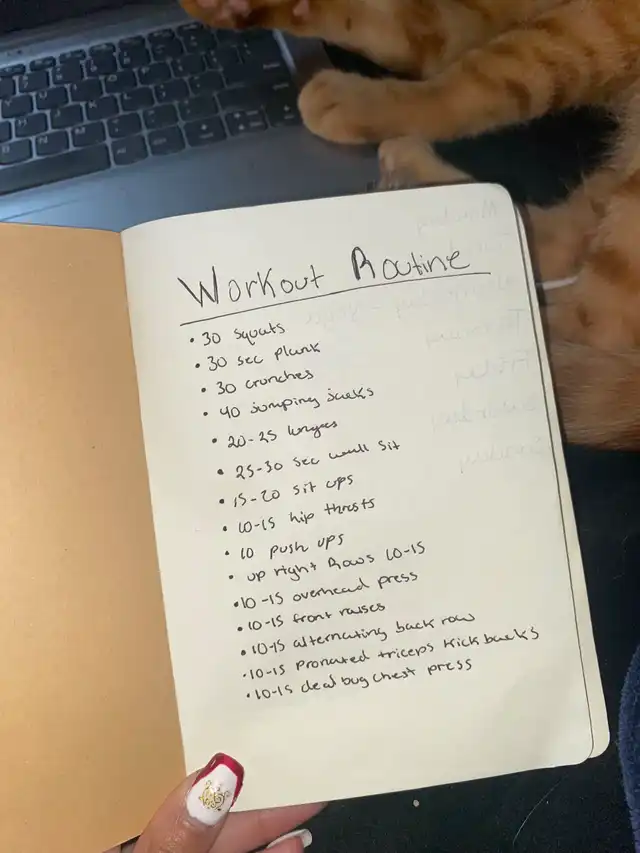 Workout Routine
• 30 squats
• 30 sec plank
• 30 crunches
• 40 jumping jacks
• 20-25 lunges
• 25-30 sec wall sit
• 15-20 sit ups
• 10-15 hip thrusts
• 10 push ups
• up right Rows 10-15
• 10-15 overhead press
• 10-15 front raises
• 10-15 alternating back row
• 10-15 Pronated triceps Kickbacks
• 10-15 dead bug chest press